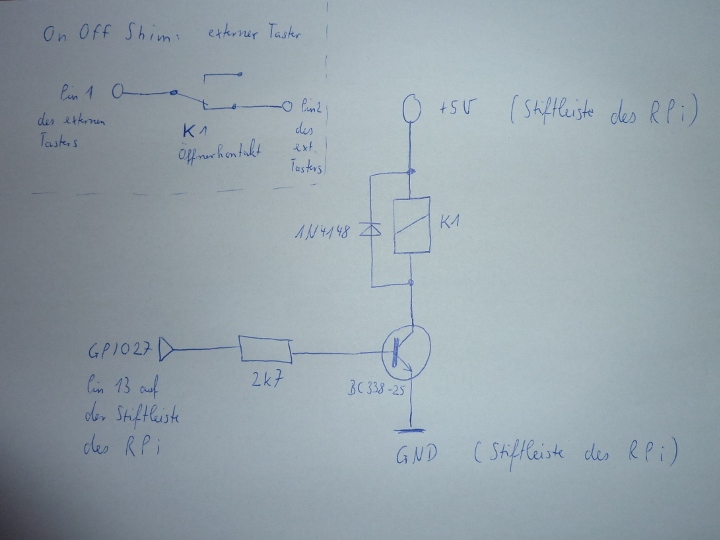 On Off Shim: externer Taster
Pin 1
des externen
Tasters
K1
Öffnerkontakt
Pin2
des
ext.
Tasters
+5V (Stiftleiste des RPi)
1N4148
K1
GPIO27
2k7
BC338-25
Pin 13 auf
der Stiftleiste
des RPi
GND (Stiftleiste des RPi)